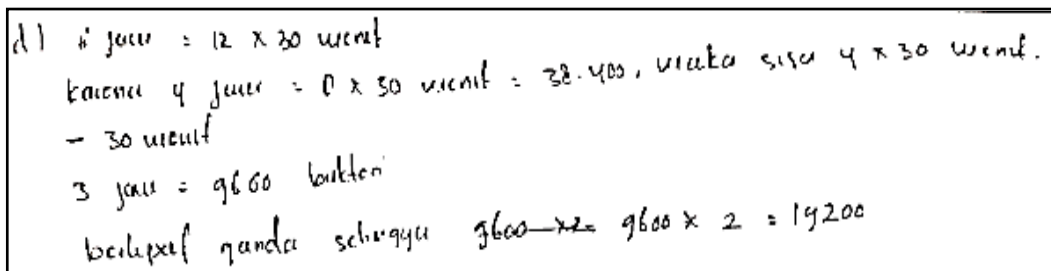 d) 6 jam = 12 x 30 menit
karena 4 jam = 8 x 30 menit = 38.400, maka sisa 4 x 30 menit.
- 30 menit
3 jam = 9600 bakteri
berlipat ganda sehingga 9600 x 2 = 9600 x 2 = 19200